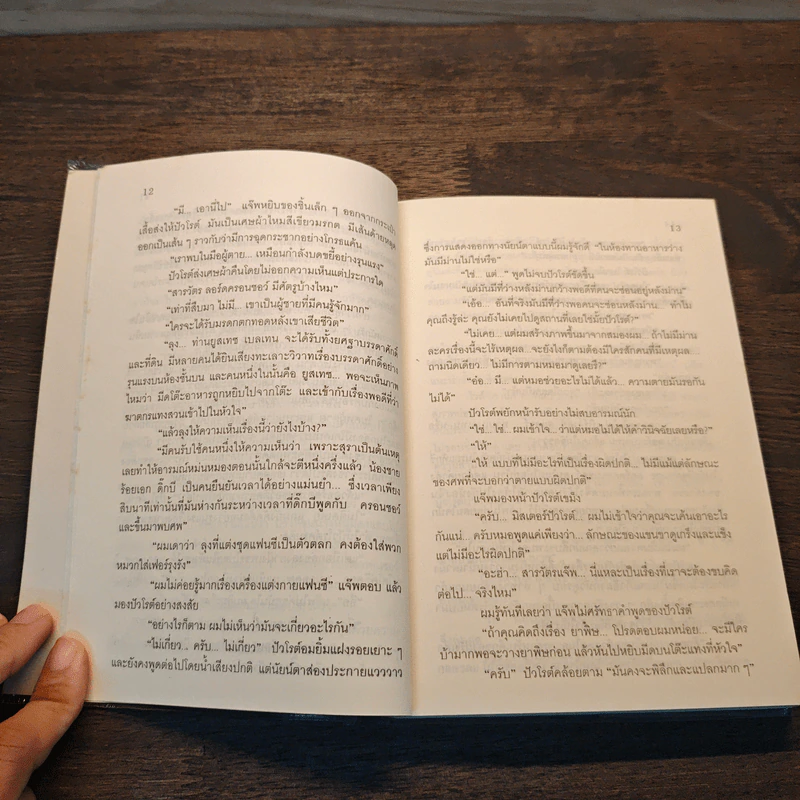 12
"มี... เอานี่ไป" แจ๊พหยิบของชิ้นเล็ก ๆ ออกจากกระเป๋า
เสื้อส่งให้ปัวโรต์ มันเป็นเศษผ้าไหมสีเขียวมรกต มีเส้นด้ายหลุด
ออกเป็นเส้น ๆ ราวกับว่ามีการฉุดกระชากอย่างโกรธแค้น
"เราพบในมือผู้ตาย... เหมือนกำลังบดขยี้อย่างรุนแรง"
ปัวโรต์ส่งเศษผ้าคืนโดยไม่ออกความเห็นแต่ประการใด
"สารวัตร ลอร์ดครอนชอว์ มีศัตรูบ้างไหม"
"เท่าที่สืบมา ไม่มี... เขาเป็นผู้ชายที่มีคนรู้จักมาก"
"ใครจะได้รับมรดกตกทอดหลังเขาเสียชีวิต"
"ลุง... ท่านยูสเทซ เบลเทน จะได้รับทั้งยศฐาบรรดาศักดิ์
และที่ดิน มีหลายคนได้ยินเสียงทะเลาะวิวาทเรื่องบรรดาศักดิ์อย่าง
รุนแรงบนห้องชั้นบน และคนหนึ่งในนั้นคือ ยูสเทซ... พอจะเห็นภาพ
ไหมว่า มีดโต๊ะอาหารถูกหยิบไปจากโต๊ะ และเข้ากับเรื่องพอดีที่ว่า
ฆาตกรแทงสวนเข้าไปในหัวใจ"
"แล้วลุงให้ความเห็นเรื่องนี้ว่ายังไงบ้าง?"
"มีคนรับใช้คนหนึ่งให้ความเห็นว่า เพราะสุราเป็นต้นเหตุ
เลยทำให้อารมณ์หม่นหมองตอนนั้นใกล้จะตีหนึ่งครึ่งแล้ว น้องชาย
ร้อยเอก ดิ๊กบี เป็นคนยืนยันเวลาได้อย่างแม่นยำ... ซึ่งเวลาเพียง
สิบนาทีเท่านั้นที่มันห่างกันระหว่างเวลาที่ดิ๊กบีพูดกับ ครอนชอว์
และขึ้นมาพบศพ"
"ผมเดาว่า ลุงที่แต่งชุดแฟนซีเป็นตัวตลก คงต้องใส่พวก
หมวกใส่เฟอร์รุงรัง"
"ผมไม่ค่อยรู้มากเรื่องเครื่องแต่งกายแฟนซี" แจ๊พตอบ แล้ว
มองปัวโรต์อย่างสงสัย
"อย่างไรก็ตาม ผมไม่เห็นว่ามันจะเกี่ยวอะไรกัน"
"ไม่เกี่ยว... ครับ... ไม่เกี่ยว" ปัวโรต์อมยิ้มแฝงรอยเยาะ ๆ
และยังคงพูดต่อไปโดยน้ำเสียงปกติ แต่นัยน์ตาส่องประกายแวววาว
13
ซึ่งการแสดงออกทางนัยน์ตาแบบนี้ผมรู้จักดี "ในห้องทานอาหารว่าง
มันมีม่านไม่ใช่หรือ"
"ใช่... แต่..." พูดไม่จบปัวโรต์ขัดขึ้น
"แต่มันมีที่ว่างหลังม่านกว้างพอดีที่คนจะซ่อนอยู่หลังม่าน"
"เอ้อ... อันที่จริงมันมีที่ว่างพอคนจะซ่อนหลังม่าน... ทำไม
คุณถึงรู้ล่ะ คุณยังไม่เคยไปดูสถานที่เลยใช่มั้ยปัวโรต์?"
"ไม่เคย... แต่ผมสร้างภาพขึ้นมาจากสมองผม... ถ้าไม่มีม่าน
ละครเรื่องนี้จะไร้เหตุผล... จะยังไงก็ตามต้องมีใครสักคนที่มีเหตุผล...
ถามนิดเดียว... ไม่มีการตามหมอมาดูเลยรึ?"
"อ๋อ... มี... แต่หมอช่วยอะไรไม่ได้แล้ว... ความตายมันรอกัน
ไม่ได้"
ปัวโรต์พยักหน้ารับอย่างไม่สบอารมณ์นัก
"ใช่... ใช่... ผมเข้าใจ... ว่าแต่หมอไม่ได้ให้คำวินิจฉัยเลยหรือ?"
"ให้"
"ให้ แบบที่ไม่มีอะไรที่เป็นเรื่องผิดปกติ... ไม่มีแม้แต่ลักษณะ
ของศพที่จะบอกว่าตายแบบผิดปกติ"
แจ๊พมองหน้าปัวโรต์เขม็ง
"ครับ... มิสเตอร์ปัวโรต์... ผมไม่เข้าใจว่าคุณจะเค้นเอาอะไร
กันแน่... ครับหมอพูดแค่เพียงว่า... ลักษณะของแขนขาดูเกร็งและแข็ง
แต่ไม่มีอะไรผิดปกติ"
"อะฮ่า... สารวัตรแจ๊พ... นี่แหละเป็นเรื่องที่เราจะต้องขบคิด
ต่อไป... จริงไหม"
ผมรู้ทันทีเลยว่า แจ๊พไม่ศรัทธาคำพูดของปัวโรต์
"ถ้าคุณคิดถึงเรื่อง ยาพิษ... โปรดตอบผมหน่อย... จะมีใคร
บ้ามากพอจะวางยาพิษก่อน แล้วหันไปหยิบมีดบนโต๊ะแทงที่หัวใจ"
"ครับ" ปัวโรต์คล้อยตาม "มันคงจะพิลึกและแปลกมาก ๆ"